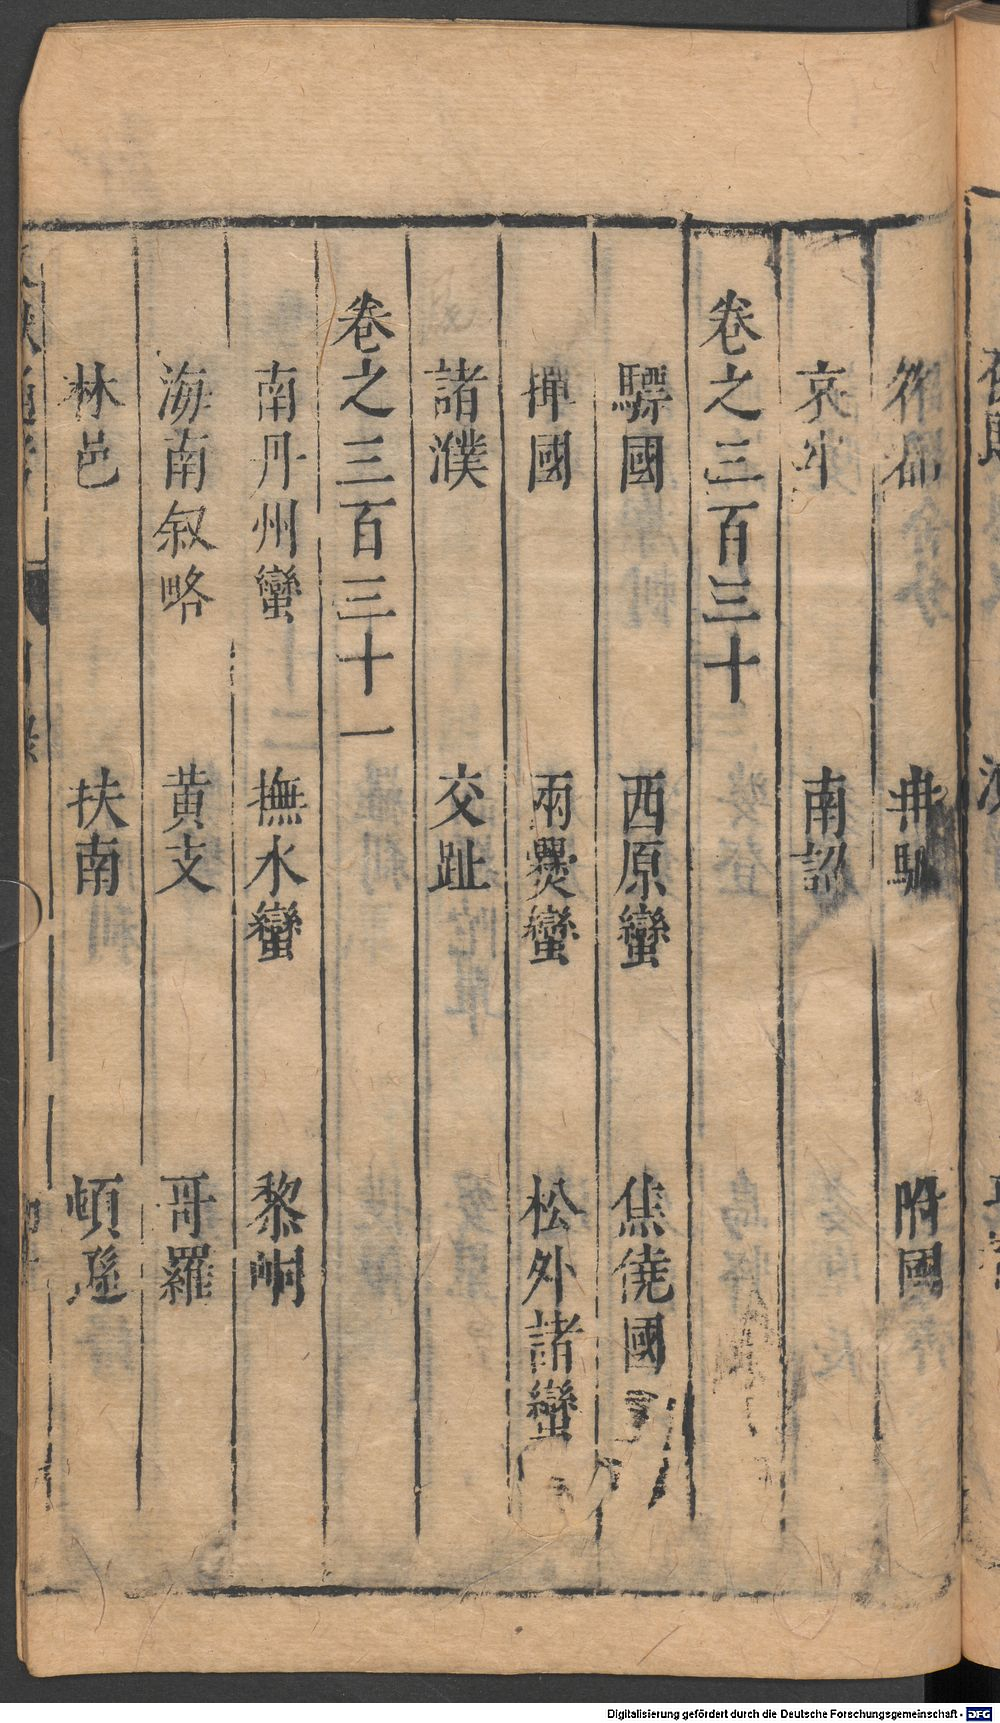 筰都 冉駹 附國
哀牢 南詔
卷之三百三十
驃國 西原蠻 焦僥國
撣國 兩爨蠻 松外諸蠻
諸濮 交趾
卷之三百三十一
南丹州蠻 撫水蠻 黎峒
海南叙略 黄支 哥羅
林邑 扶南 頓遜
Digitalisierung gefördert durch die Deutsche Forschungsgemeinschaft - DFG